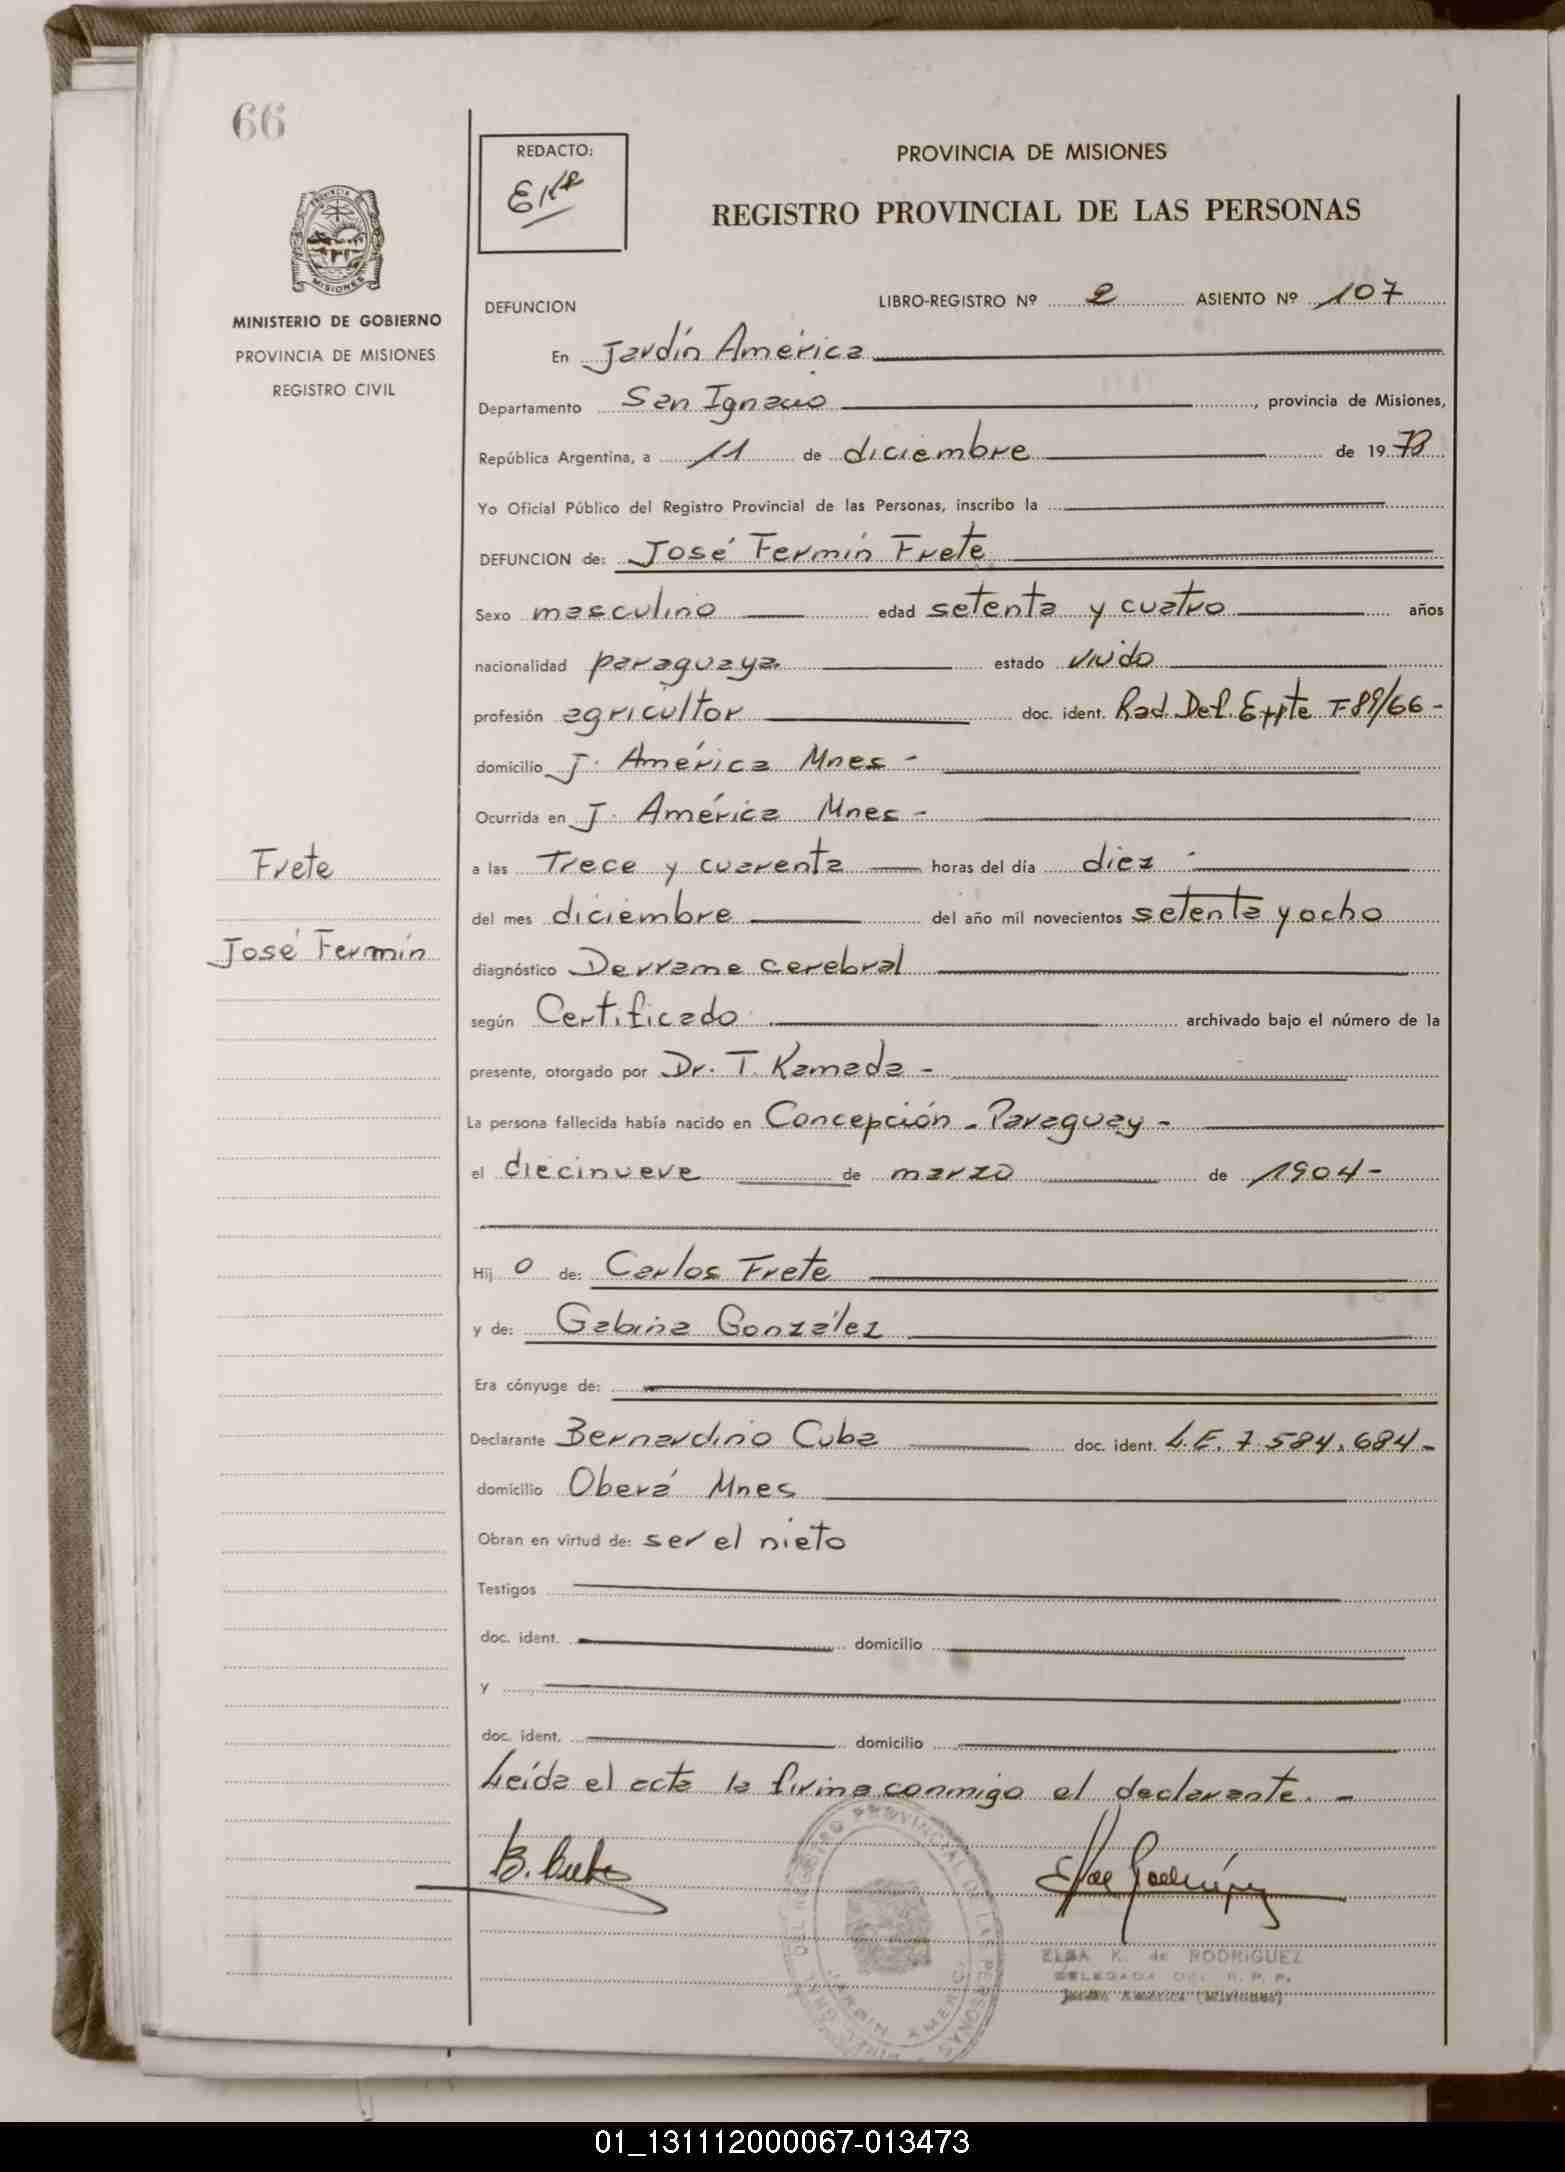 66
REDACTO:
EKR
PROVINCIA DE MISIONES
REGISTRO PROVINCIAL DE LAS PERSONAS
PROVINCIA DE
MISIONES
MINISTERIO DE GOBIERNO
PROVINCIA DE MISIONES
REGISTRO CIVIL
DEFUNCION LIBRO-REGISTRO Nº 2 ASIENTO Nº 107
En Jardín América
Departamento San Ignacio, provincia de Misiones,
República Argentina, a 11 de diciembre de 1978
Yo Oficial Público del Registro Provincial de las Personas, inscribo la
DEFUNCION de: José Fermín Frete
Sexo masculino edad setenta y cuatro años
nacionalidad paraguaya estado viudo
profesión agricultor doc. ident. Rad. Def. Expte F89/66-
domicilio J. América Mnes -
Ocurrida en J. América Mnes -
Frete
a las Trece y cuarenta horas del día diez -
del mes diciembre del año mil novecientos setenta y ocho
José Fermín
diagnóstico Derrame cerebral
según Certificado archivado bajo el número de la
presente, otorgado por Dr. T. Kamada -
La persona fallecida había nacido en Concepción - Paraguay -
el diecinueve de marzo de 1904-
Hij o de: Carlos Frete
y de: Gabina González
Era cónyuge de:
Declarante Bernardino Cuba doc. ident. L.E. 7.584.684-
domicilio Oberá Mnes
Obran en virtud de: ser el nieto
Testigos
doc. ident. domicilio
y
doc. ident. domicilio
Leída el acta la firma conmigo el declarante. -
B. Cuba
ELSA K. de RODRIGUEZ
DELEGADA DEL R. P. P.
Jardín América (Misiones)
01_131112000067-013473